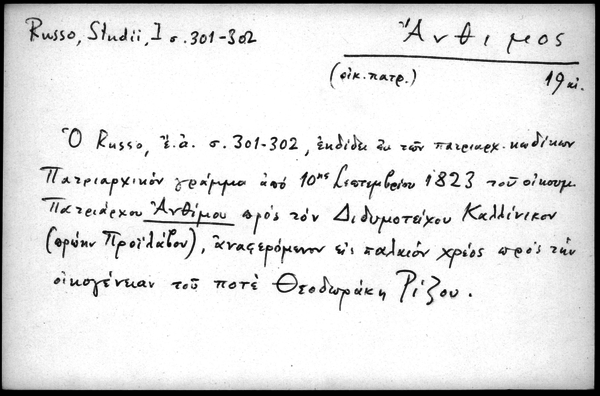 Russo, Studii, I σ. 301-302
Ἄνθιμος
(οἰκ. πατρ.)
19 αἰ.
Ὁ Russo, ἔ.ἀ. σ. 301-302, ἐκδίδει ἐκ τῶν πατριαρχ. κωδίκων
Πατριαρχικόν γράμμα ἀπό 10ης Σεπτεμβρίου 1823 τοῦ οἰκουμ.
Πατριάρχου Ἀνθίμου πρός τόν Διδυμοτείχου Καλλίνικον
(πρώην Προϊλάβου), ἀναφερόμενον εἰς παλαιόν χρέος πρός τήν
οἰκογένειαν τοῦ ποτέ Θεοδωράκη Ρίζου.